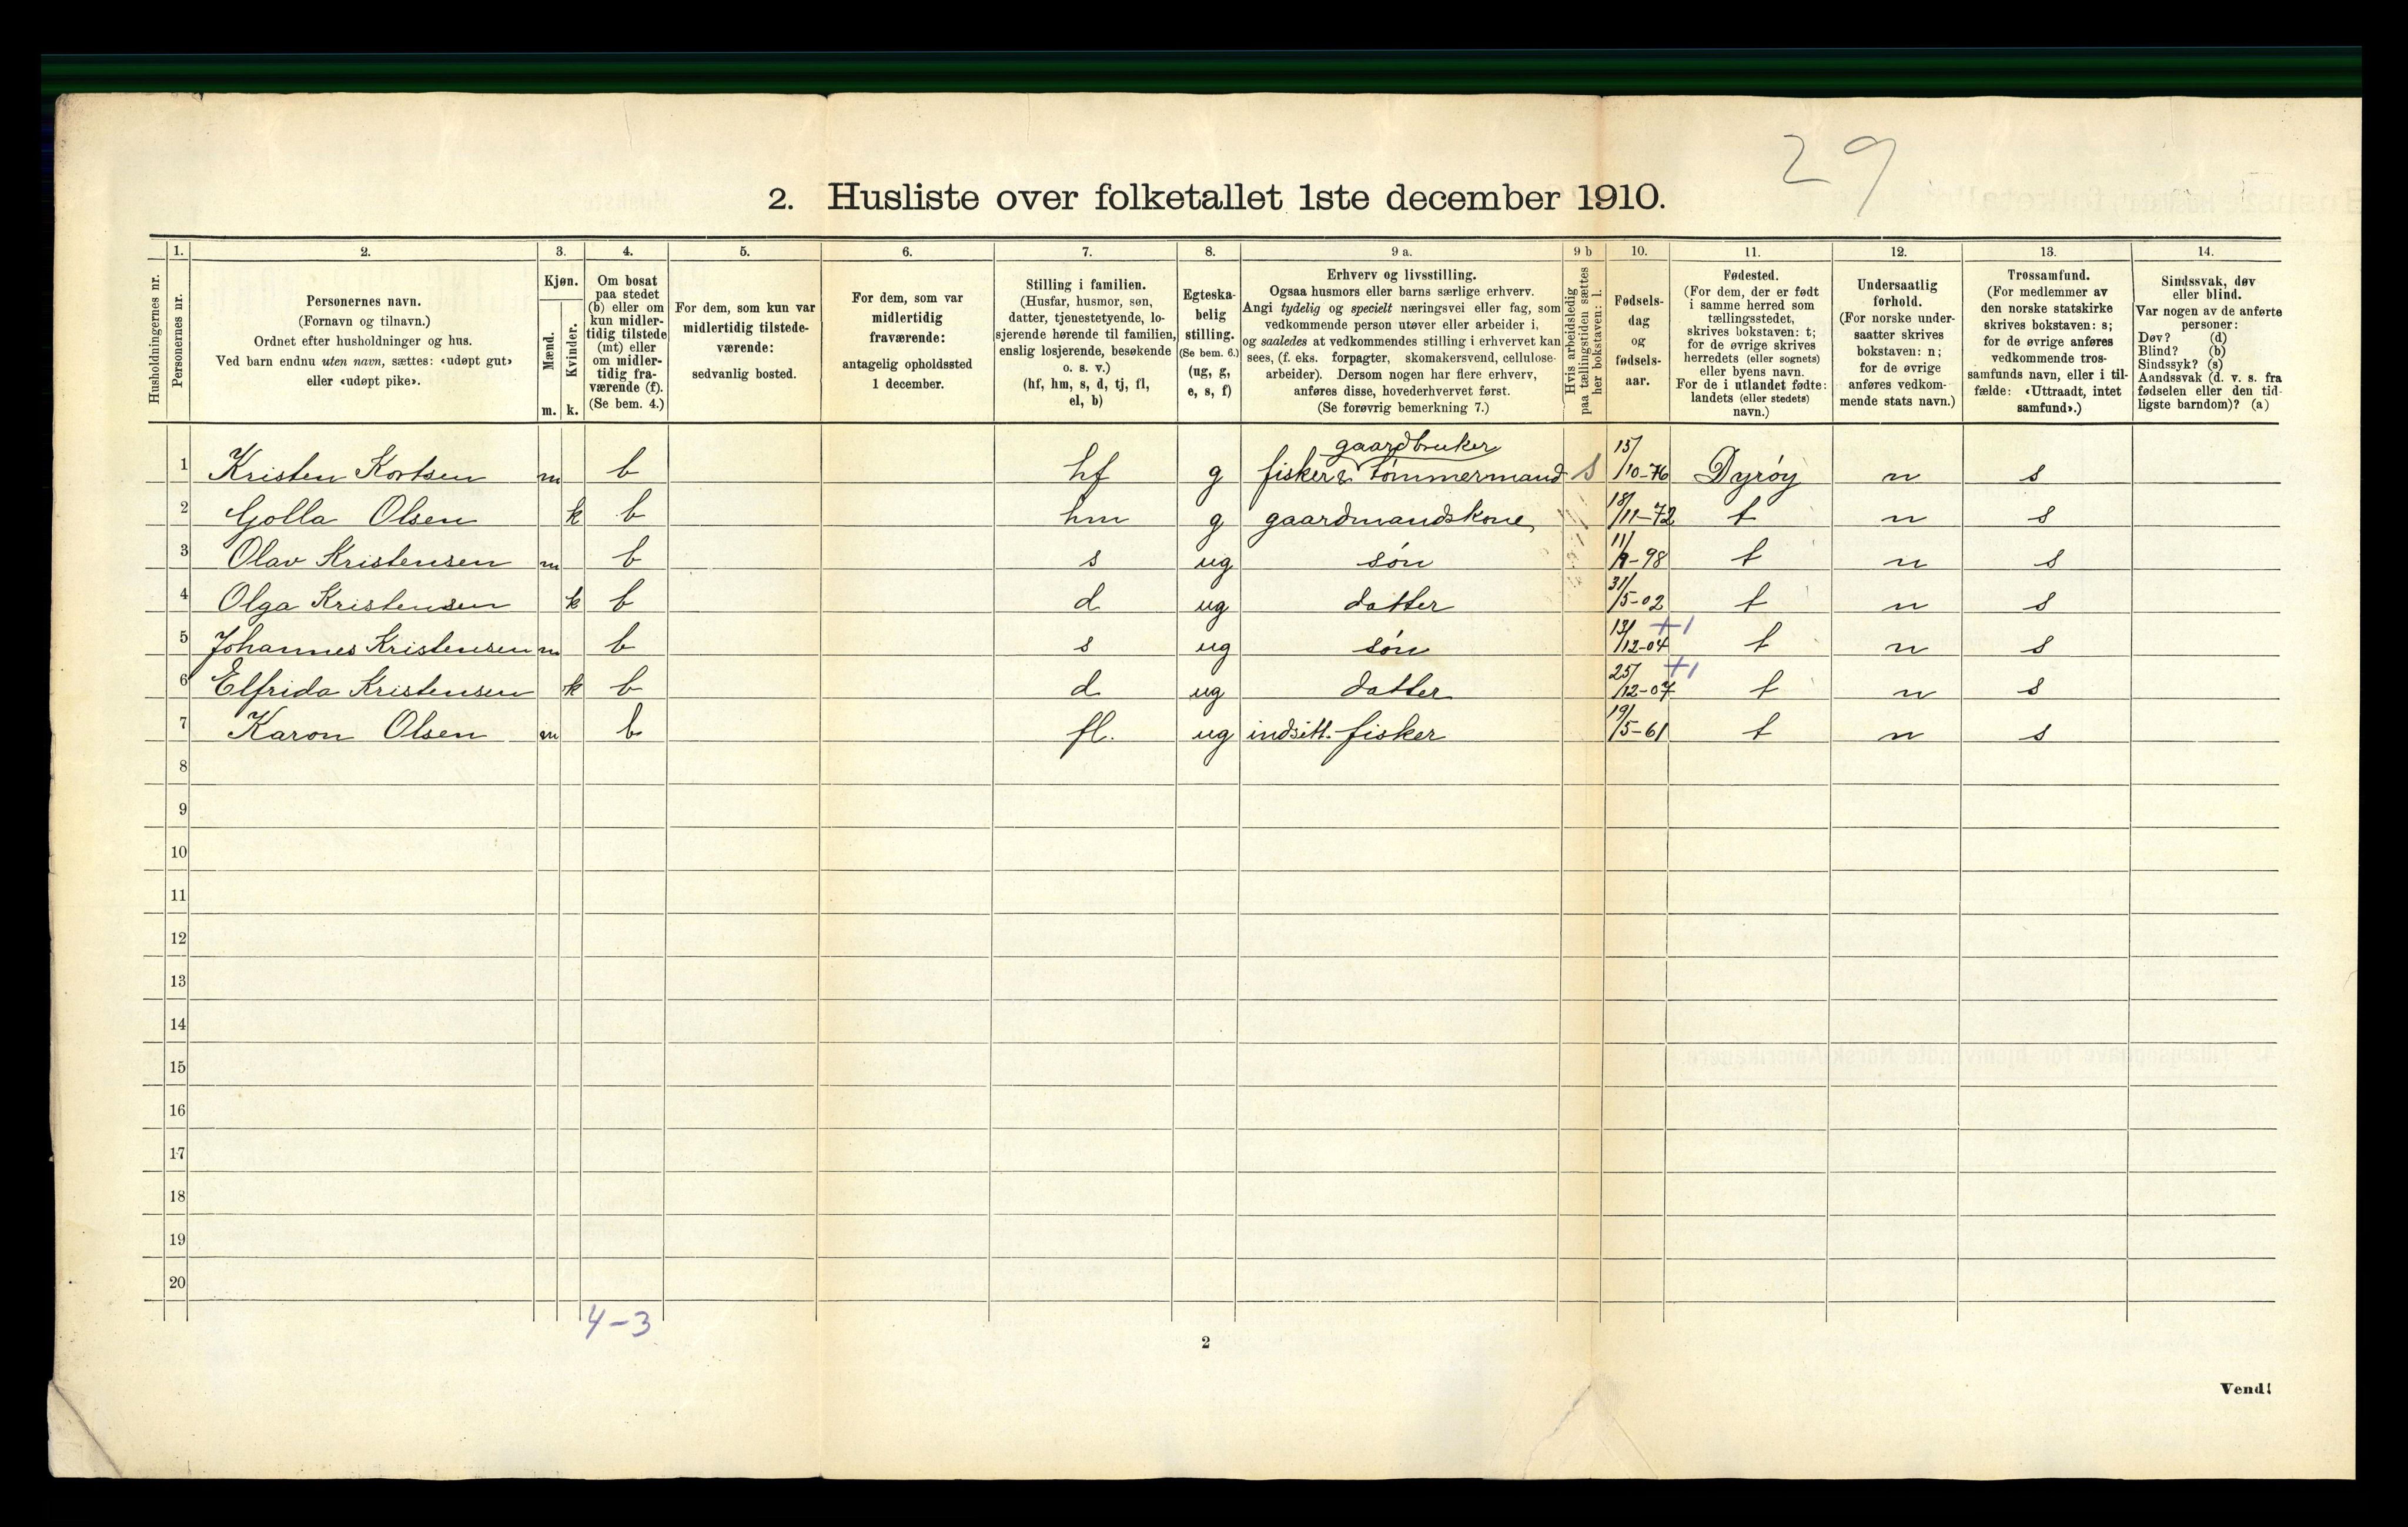 29
2. Husliste over folketallet 1ste december 1910.
1. 2. 3. 4. 5. 6. 7. 8. 9 a. 9 b 10. 11. 12. 13. 14.
Husholdningernes nr.
Personernes nr.
Personernes navn.
(Fornavn og tilnavn.)
Ordnet efter husholdninger og hus.
Ved barn endnu uten navn, sættes: «udøpt gut»
eller «udøpt pike».
Kjøn.
Mænd.
Kvinder.
m. k.
Om bosat
paa stedet
(b) eller om
kun midler-
tidig tilstede
(mt) eller
om midler-
tidig fra-
værende (f).
(Se bem. 4.)
For dem, som kun var
midlertidig tilstede-
værende:
sedvanlig bosted.
For dem, som var
midlertidig
fraværende:
antagelig opholdssted
1 december.
Stilling i familien.
(Husfar, husmor, søn,
datter, tjenestetyende, lo-
sjerende hørende til familien,
enslig losjerende, besøkende
o. s. v.)
(hf, hm, s, d, tj, fl,
el, b)
Egteska-
belig
stilling.
(Se bem. 6.)
(ug, g,
e, s, f)
Erhverv og livsstilling.
Ogsaa husmors eller barns særlige erhverv.
Angi tydelig og specielt næringsvei eller fag, som
vedkommende person utøver eller arbeider i,
og saaledes at vedkommendes stilling i erhvervet kan
sees, (f. eks. forpagter, skomakersvend, cellulose-
arbeider). Dersom nogen har flere erhverv,
anføres disse, hovederhvervet først.
(Se forøvrig bemerkning 7.)
Hvis arbeidsledig
paa tællingstiden sættes
her bokstaven: l.
Fødsels-
dag
og
fødsels-
aar.
Fødested.
(For dem, der er født
i samme herred som
tællingsstedet,
skrives bokstaven: t;
for de øvrige skrives
herredets (eller sognets)
eller byens navn.
For de i utlandet fødte:
landets (eller stedets)
navn.)
Undersaatlig
forhold.
(For norske under-
saatter skrives
bokstaven: n;
for de øvrige
anføres vedkom-
mende stats navn.)
Trossamfund.
(For medlemmer av
den norske statskirke
skrives bokstaven: s;
for de øvrige anføres
vedkommende tros-
samfunds navn, eller i til-
fælde: «Uttraadt, intet
samfund».)
Sindssvak, døv
eller blind.
Var nogen av de anførte
personer:
Døv? (d)
Blind? (b)
Sindssyk? (s)
Aandssvak (d. v. s. fra
fødselen eller den tid-
ligste barndom)? (a)
gaardbruker
1 Kristen Kortsen m b hf g fisker & tømmermand s 15/10-76 Dyrøy n s
2 Golla Olsen k b hm g gaardmandskone 18/11-72 t n s
3 Olav Kristensen m b s ug søn 11/9-98 t n s
4 Olga Kristensen k b d ug datter 31/5-02 t n s
5 Johannes Kristensen m b s ug søn 13/12-04 +1 t n s
6 Elfrida Kristensen k b d ug datter 25/12-07 +1 t n s
7 Karon Olsen m b fl. ug indsitt. fisker 19/5-61 t n s
8
9
10
11
12
13
14
15
16
17
18
19
20
4-3
2
Vend!